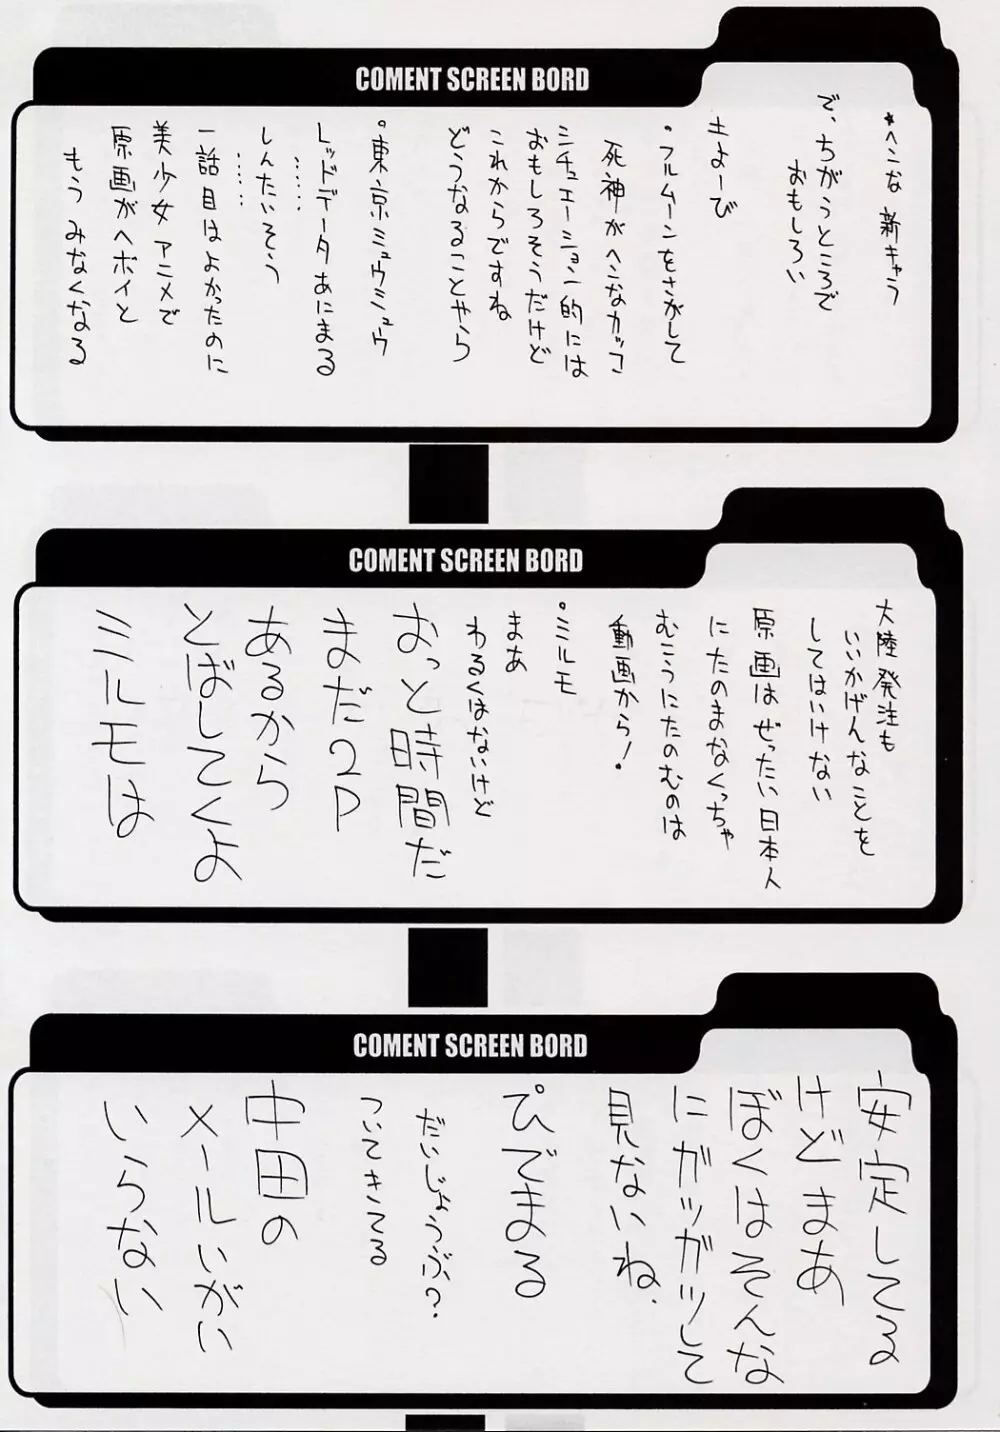 COMENT SCREEN BORD
*ヘンな 新キャラ
で、ちがうところで
おもしろい
土よーび
・フルムーンをさがして
死神がヘンなカッコ
シチュエーション的には
おもしろそうだけど
これからですね
どうなることやら
。東京ミュウミュウ
レッドデータあにまる
……
しんたいそう
……
一話目はよかったのに
美少女アニメで
原画がヘボイと
もう みなくなる
COMENT SCREEN BORD
大陸発注も
いいかげんなことを
してはいけない
原画はぜったい日本人
にたのまなくっちゃ
むこうにたのむのは
動画から!
。ミルモ
まあ
わるくはないけど
おっと時間だ
まだ2P
あるから
とばしてくよ
ミルモは
COMENT SCREEN BORD
安定してる
けどまあ
ぼくはそんな
にガッガッして
見ないね.
ぴでまる
だいじょうぶ?
ついてきてる
中田の
メールいがい
いらない